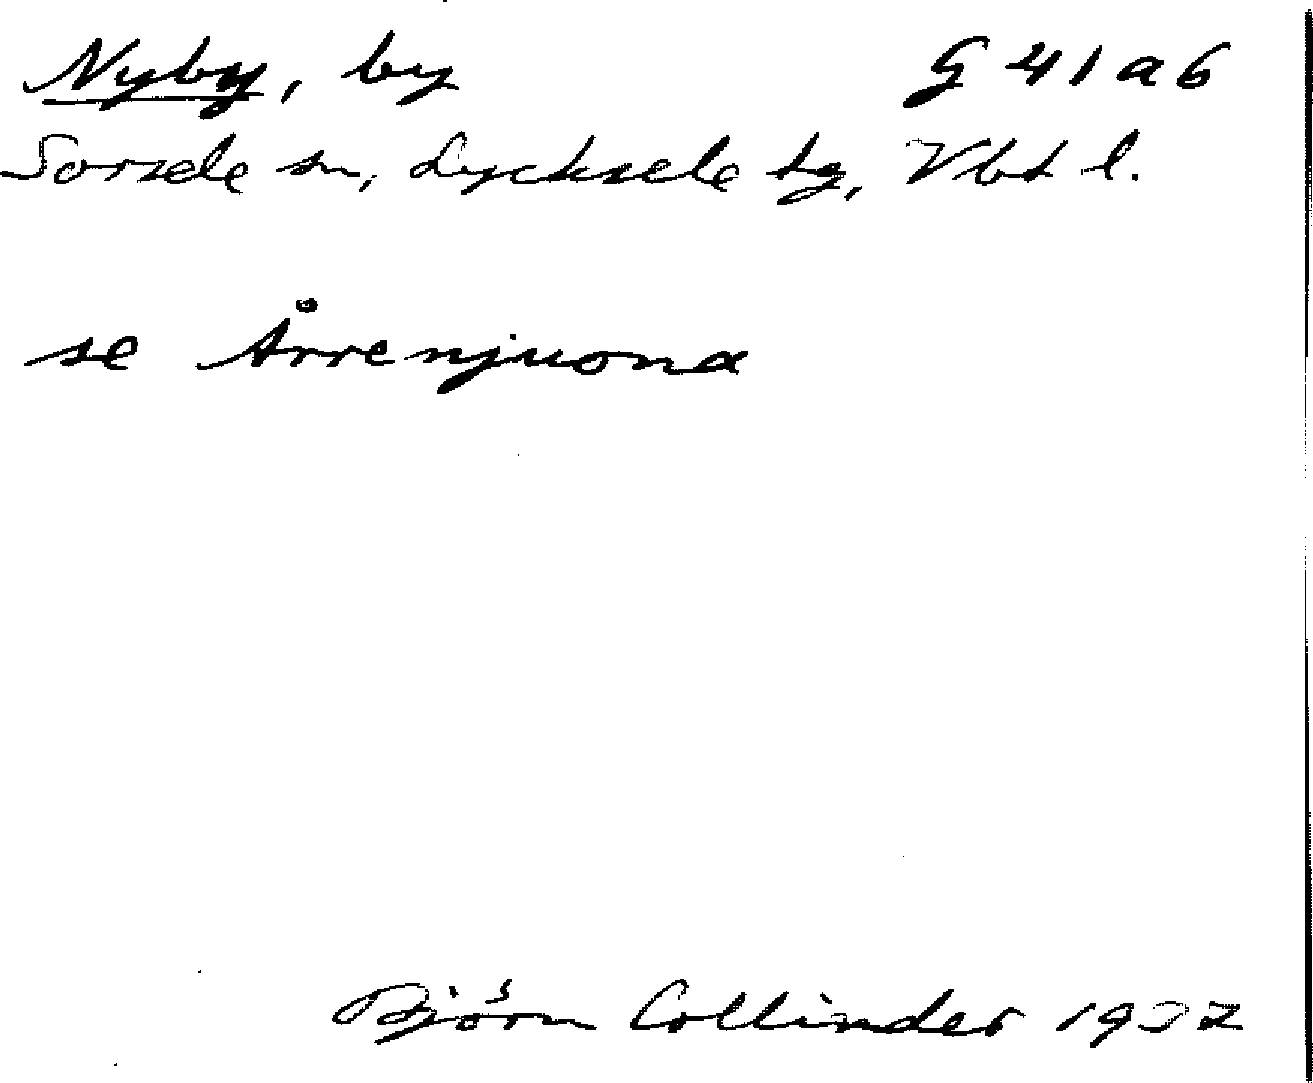 Nyby, by G 41 a 6
Sorsele sn, Lycksele tg, Vbt l.
se Årrenjuona
Björn Collinder 1937